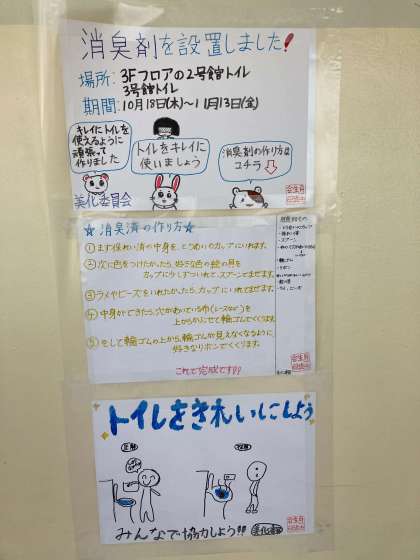 消臭剤を設置しました！
場所：3Fフロアの2号館トイレ
3号館トイレ
期間：10月18日(木)～11月13日(金)
キレイにトイレを
使えるように
頑張って
作りました
トイレをキレイに
使いましょう
消臭剤の作り方は
コチラ
美化委員会
☆消臭済の作り方☆
①まず保れい済の中身を、とうめいのカップにいれます。
②次に色をつけたかったら、好きな色の絵の具を
カップに少しずついれて、スプーンでまぜます。
③ラメやビーズをいれたかったら、カップにいれてまぜます。
④中身ができたら、穴があいている布(レースなど)を
上からかぶせて輪ゴムでくくります。
⑤そして輪ゴムの上から、輪ゴムが見えなくなるように
好きなリボンでくくります。
これで完成です!!
・スプーン
・輪ゴム
・リボン
・ラメ、ビーズ
トイレをきれいにしよう
みんなで協力しよう!!
美化委員